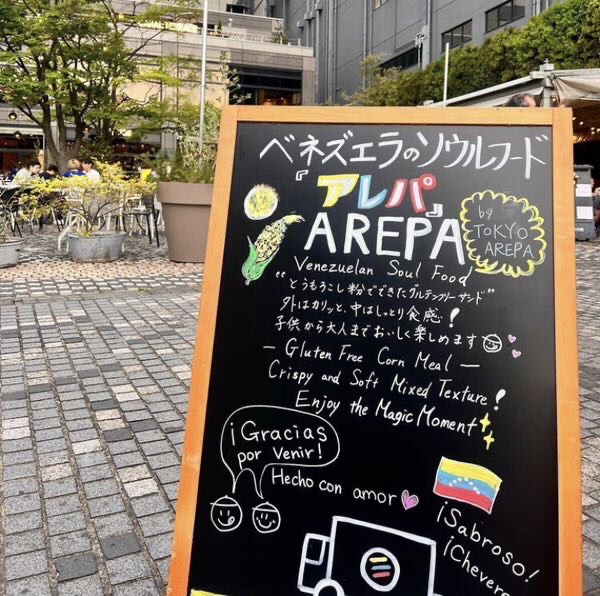 ベネズエラのソウルフード
『アレパ』
AREPA
by
TOKYO
AREPA
Venezuelan Soul Food
"とうもろこし粉でできたグルテンフリーサンド"
外はカリッと、中はしっとり食感！
子供から大人までおいしく楽しめます
— Gluten Free Corn Meal —
Crispy and Soft Mixed Texture!
Enjoy the Magic Moment
¡Gracias
por venir!
Hecho con amor
¡Sabroso!
¡Chevere